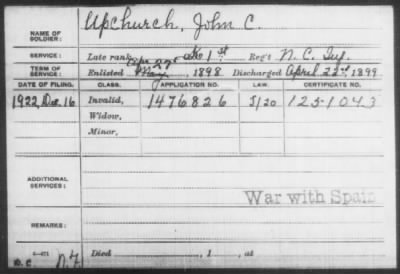 NAME OF SOLDIER: Upchurch, John C.
SERVICE: Late rank, Co 1st Reg't N.C. Inf.
TERM OF SERVICE: Enlisted Apr 27 May, 1898 Discharged April 22nd, 1899
DATE OF FILING. CLASS. APPLICATION NO. LAW. CERTIFICATE NO.
1922, Dec. 16 Invalid, 1476826 J/20 1251043
Widow,
Minor,
ADDITIONAL SERVICES:
War with Spain
REMARKS:
Died , 1 , at